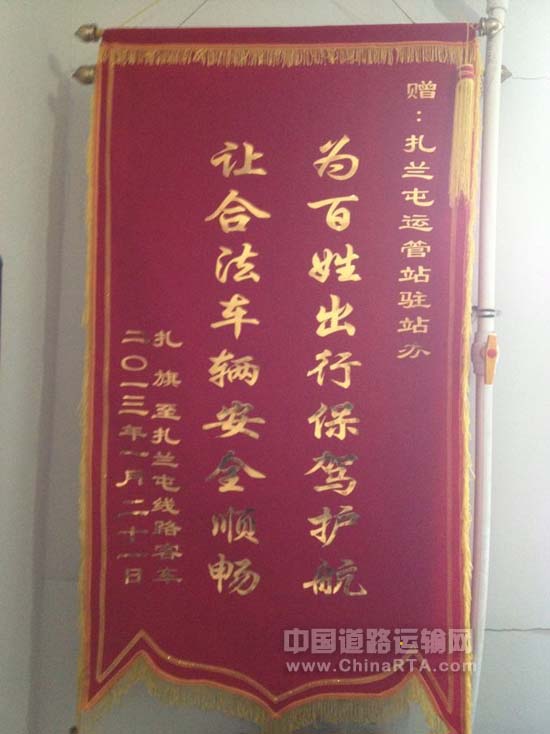 赠：扎兰屯运管站驻站办
为百姓出行保驾护航
让合法车辆安全顺畅
扎旗至扎兰屯线路客车
二〇一三年一月二十一日
中国道路运输网
www.ChinaRTA.com